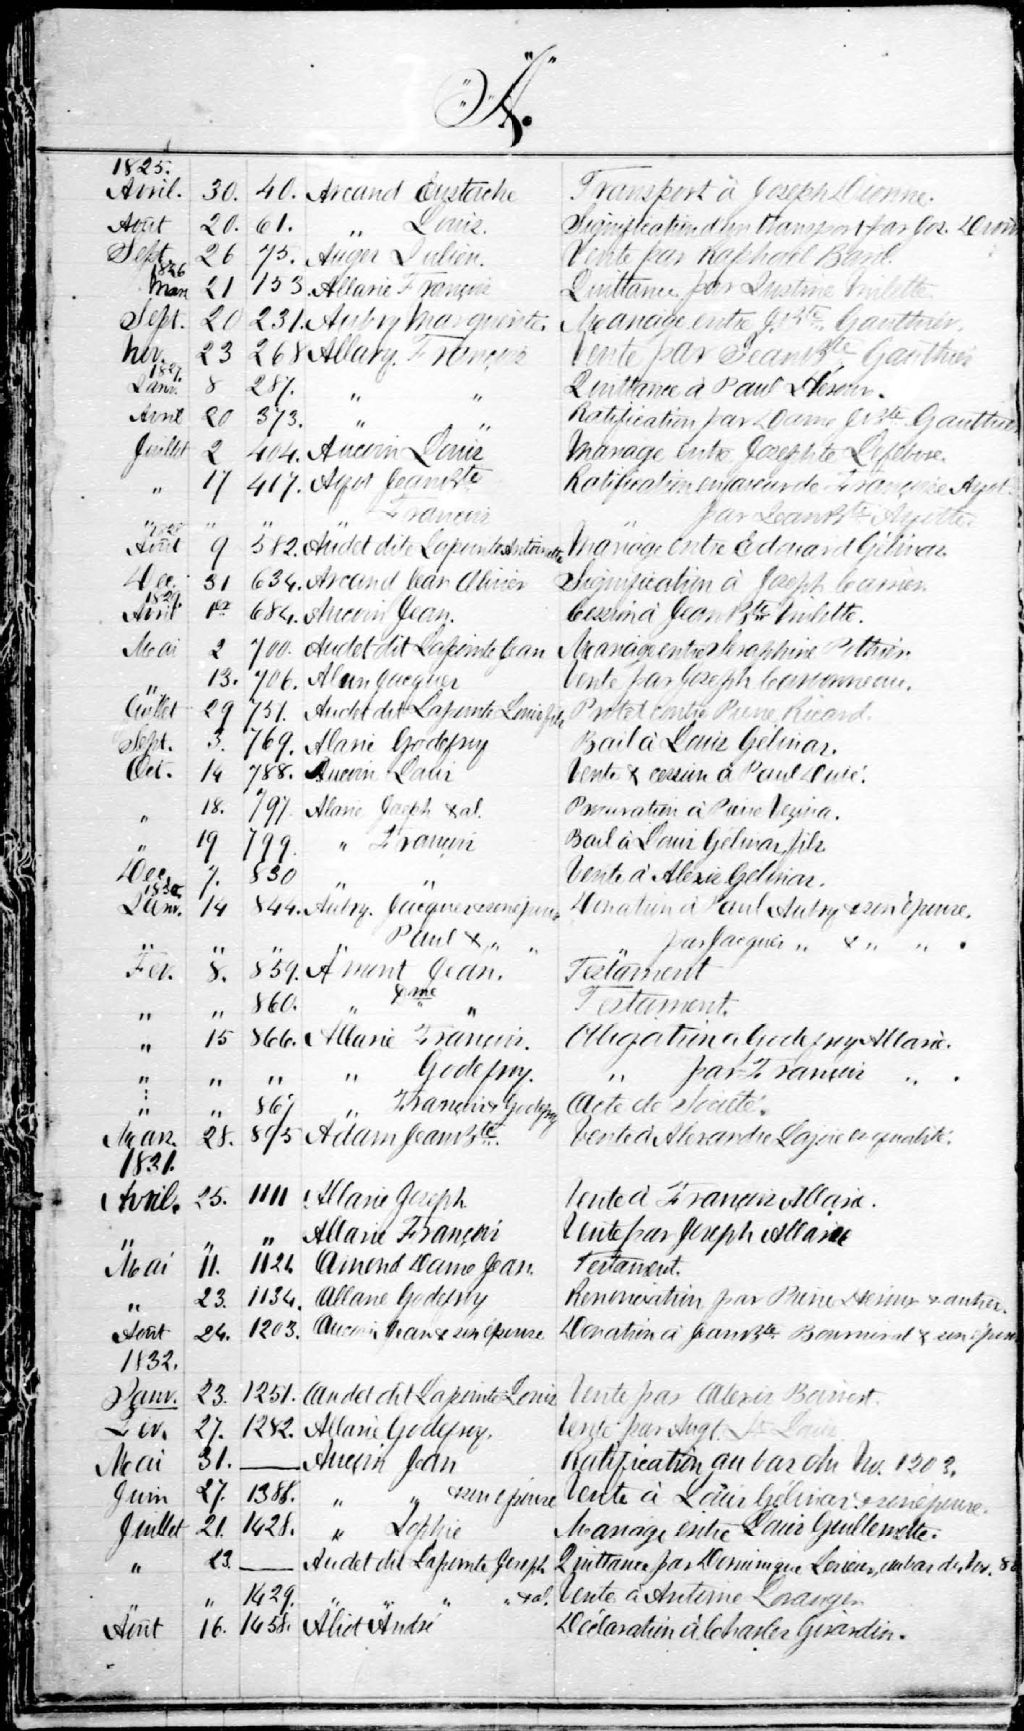 "A".
1825.
Avril. 30. 40. Arcand Eustache Transport à Joseph Dionne.
Août 20. 61. " Louis. Signification d'un transport par Jos. Drouin
Sept. 26 75. Auger Julien. Vente par Raphael Baril.
1826
Mars 21 153 Allarie François Quittance par Justine Vinlette.
Sept. 20 231. Aubry Marguerite. Mariage entre J. Bte Gauthier.
Nov. 23 268 Allary. François Vente par Jean Bte Gauthier
1827.
Janv. 8 287. " " Quittance à Paul
Avril 20 373. " " Ratification par Dame J. Bte Gauthier
Juillet 2 404. Aucoin Louis Mariage entre Josephte Lefebvre.
" 17 417. Ayot Jean Bte Ratification en faveur de Françoise Ayot
François par Jean Bte Ayotte
1828 " "
Août 9 582. Audet dite Lapointe Antoinette Mariage entre Edouard Gélinas
Dec. 31 634. Arcand Jean Olivier Signification à Joseph Carrier.
1829.
Avril 1er 684. Aucoin Jean. Cession à Jean Bte Vinlette.
Mai 2 700. Audet dit Lapointe Jean Mariage entre Seraphine Pothier.
" 13. 706. Jacques Vente par Joseph Carbonneau.
Juillet 29 751. Audet dit Lapointe Louis fils Protet contre Pierre Ricard.
Sept. 3. 769. Alarie Godefroy Bail à Louis Gélinas.
Oct. 14 788. Aucoin Louis Vente & cession à Paul Dubé.
" 18. 797 Alarie Joseph & al. Procuration à Pierre Vezina.
" 19 799. " François Bail à Louis Gélinas, fils
Dec. 7. 830 " " Vente à Alexis Gélinas.
1830
Janv. 14 844. Aubry. Jacques & son épouse Donation à Paul Aubry & son épouse.
" " " " Paul & " " " par Jacques " & " " .
Fev. 8. 859. Amont Jean. Testament
" " 860. " Dme " Testament.
" 15 866. Allarie François. Obligation à Godefroy Allarie.
" " " " Godefroy. " par François " .
" " 867 " François & Godefroy Acte de Société.
Mars. 28. 895 Adam Jean Bte. Vente à Alexandre Lajoie es qualité.
1831.
Avril. 25. 1111 Allarie Joseph Vente à François Allarie.
" " " Allarie François Vente par Joseph Allarie
Mai 11. 1124 Amond Dame Jean. Testament.
" 23. 1134. Allarie Godefroy Renonciation par Pierre & autres.
Août 24. 1203. Aucoin Jean & son épouse Donation à Jean Bte Bournival & son épouse
1832.
Janv. 23. 1251. Audet dit Lapointe Louis Vente par Alexis Boisvert.
Fev. 27. 1282. Allarie Godefroy. Vente par Augt. St Louis
Mai 31. — Aucoin Jean Ratification au bas du No. 1203.
Juin 27. 1388. " " & son épouse Vente à Louis Gélinas & son épouse.
Juillet 21. 1428. " Sophie Mariage entre Louis Guillemette.
" 23. — Audet dit Lapointe Joseph Quittance par Dominique au bas du No. 8
" 1429. " " " " & al. Vente à Antoine Loranger
Août 16. 1458. Aliot André Déclaration à Charles Girardin.